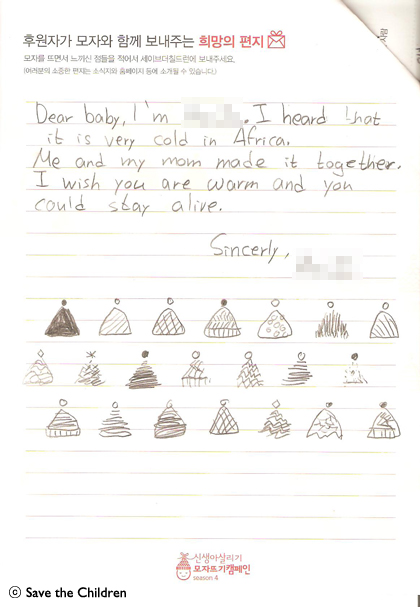 후원자가 모자와 함께 보내주는 희망의 편지
모자를 뜨면서 느끼신 점들을 적어서 세이브더칠드런에 보내주세요.
(여러분의 소중한 편지는 소식지와 홈페이지 등에 소개될 수 있습니다.)
Dear baby, I'm . I heard that
it is very cold in Africa.
Me and my mom made it together.
I wish you are warm and you
could stay alive.
Sincerly,
신생아살리기
모자뜨기캠페인
season 4
ⓒ Save the Children